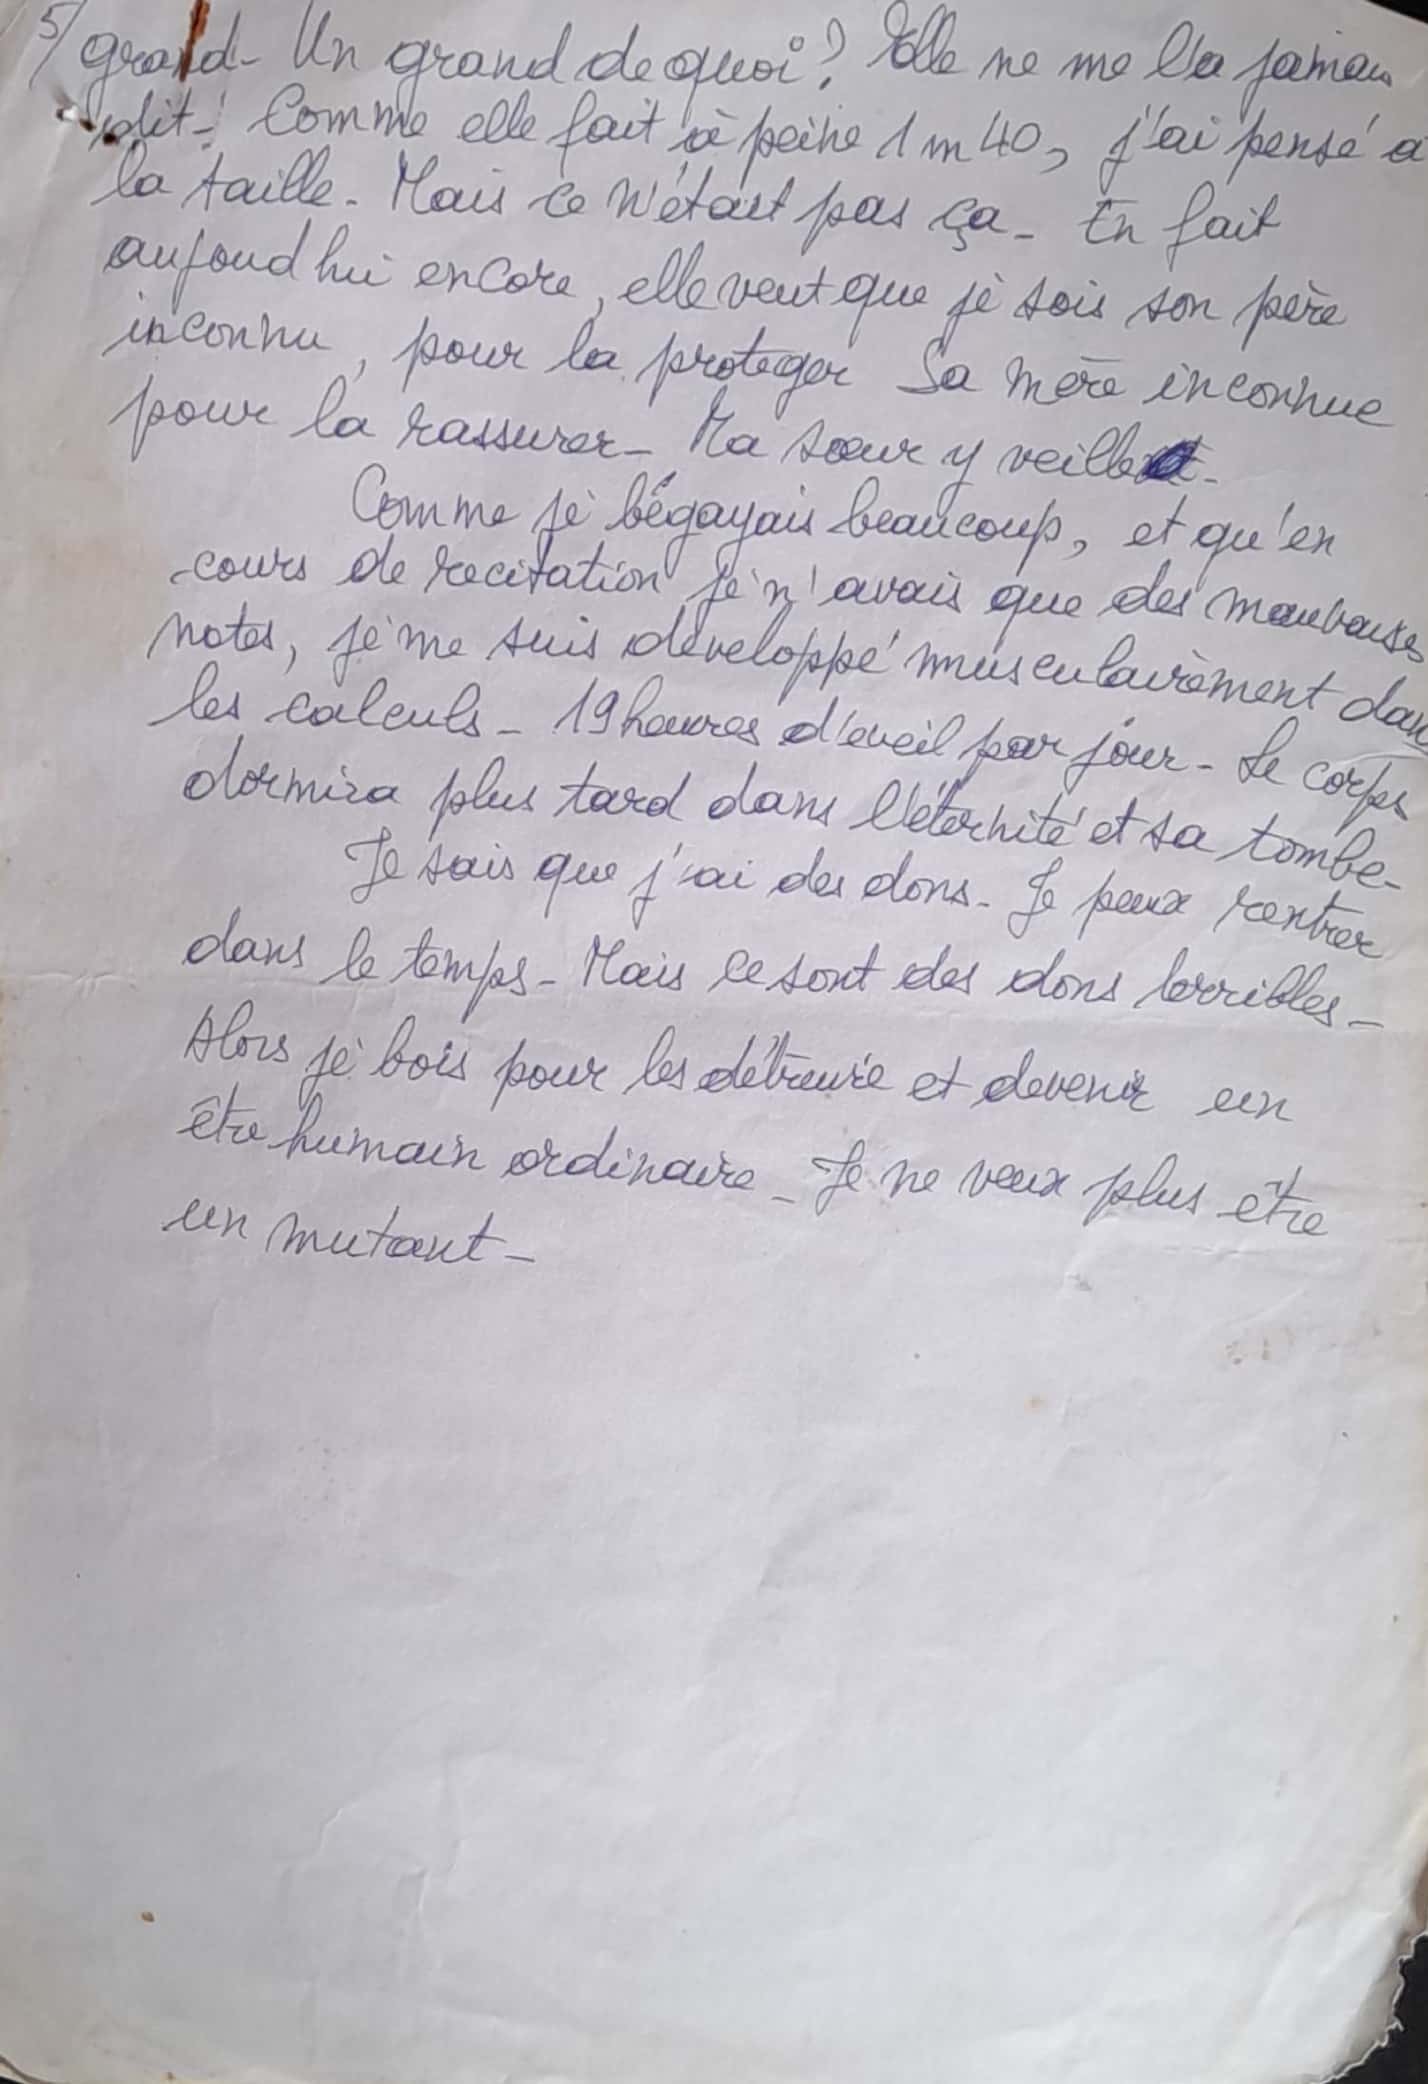 5/ grand - Un grand de quoi ? Elle ne me l'a jamais
dit - Comme elle fait à peine 1 m 40, j'ai pensé à
la taille - Mais ce n'était pas ça - En fait
aujoud hui encore, elle veut que je sois son père
inconnu, pour la proteger Sa mère inconnue
pour la rassurer - Ma sœur y veille -
Comme je bégayais beaucoup, et qu'en
cours de recitation je n'avais que des mauvaises
notes, je me suis developpé musculairement dans
les calculs - 19 heures d'eveil par jour - Le corps
dormira plus tard dans l'éternité et sa tombe -
Je sais que j'ai des dons - Je peux rentrer
dans le temps - Mais ce sont des dons terribles -
Alors je bois pour les détruire et devenir un
être humain ordinaire - Je ne veux plus être
un mutant -